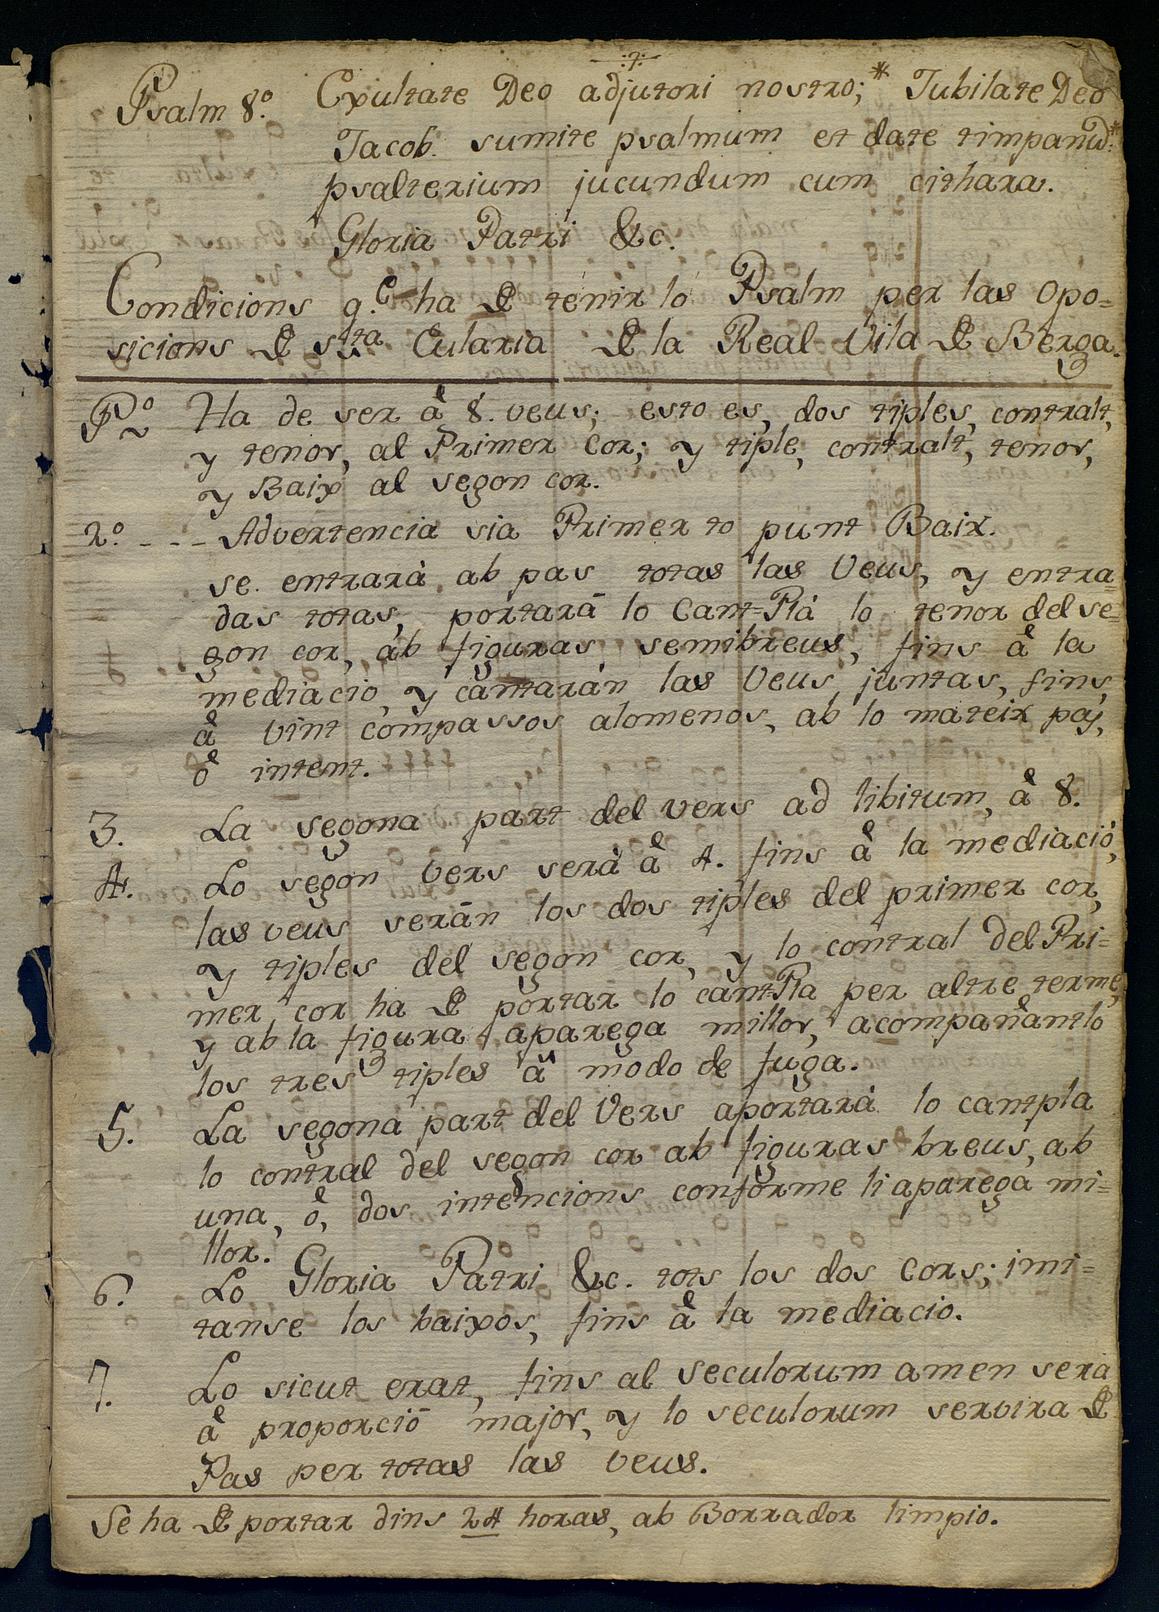 Psalm 8.º Exultate Deo adjutori nostro;* Jubilate Deo
Jacob. sumite psalmum et date timpanū:*
psalterium jucundum cum cithara.
Gloria Patri &c.
Condicions q.e ha de tenir lo Psalm per las Opo=
sicions de S.ta Eularia de la Real Vila de Berga.
P.º Ha de ser à 8. veus; esto es, dos tiples, contralt,
y tenor, al Primer Cor; y tiple, contralt, tenor,
y Baix al segon cor.
2.º - - - Advertencia sia Primer to punt Baix.
se entrarà ab pas totas las Veus, y entra=
das totas, portarà lo Cant=Plà lo tenor del se=
gon cor, ab figuras semibreus, fins à la
mediacio, y cantaràn las Veus juntas, fins,
à vint compassos alomenos, ab lo mateix pas,
ò intent.
3. La segona part del vers ad libitum, à 8.
4. Lo segon vers serà à 4. fins à la mediació,
las veus seràn los dos tiples del primer cor,
y tiples del segon cor, y lo contral del Pri=
mer cor ha de portar lo cant Pla per altre terme,
y ab la figura aparega millor, acompañantlo
los tres tiples à modo de fuga.
5. La segona part del Vers aportarà lo cantpla
lo contral del segon cor ab figuras breus, ab
una, ò, dos intencions conforme li aparega mi=
llor.
6. Lo Gloria Patri &c. tots los dos Cors; imi=
tanse los baixos, fins à la mediacio.
7. Lo sicut erat, fins al seculorum amen serà
à proporciò major, y lo seculorum servira de
Pas per totas las veus.
Se ha de portar dins 24 horas, ab Borrador limpio.